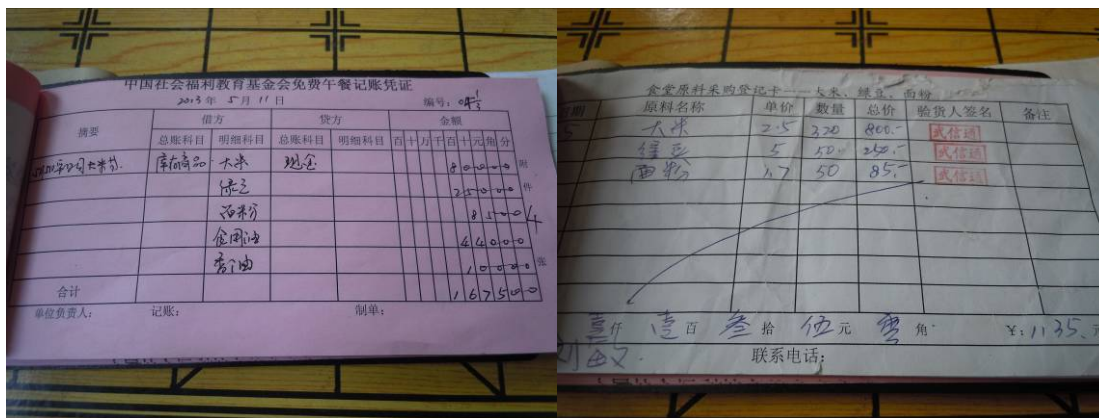 中国社会福利教育基金会免费午餐记账凭证
2013年 5月 11日 编号:
摘要 借方 贷方 金额
总账科目 明细科目 总账科目 明细科目 百 十 万 千 百 十 元 角 分
大米 库存商品 大米 现金 8 0 0 0 0 附
绿豆 2 5 0 0 0 件
面粉 8 5 0 0 4
食用油 4 4 0 0 0
香油 1 0 0 0 0 张
合计 1 6 7 5 0 0
单位负责人: 记账: 制单:
食堂原料采购登记卡——大米、绿豆、面粉
日期 原料名称 单价 数量 总价 验货人签名 备注
大米 2.5 320 800.- 武信通
绿豆 5 50 250.- 武信通
面粉 1.7 50 85.- 武信通
壹仟 壹百 叁拾 伍元 零角 ¥:1135.元
联系电话: